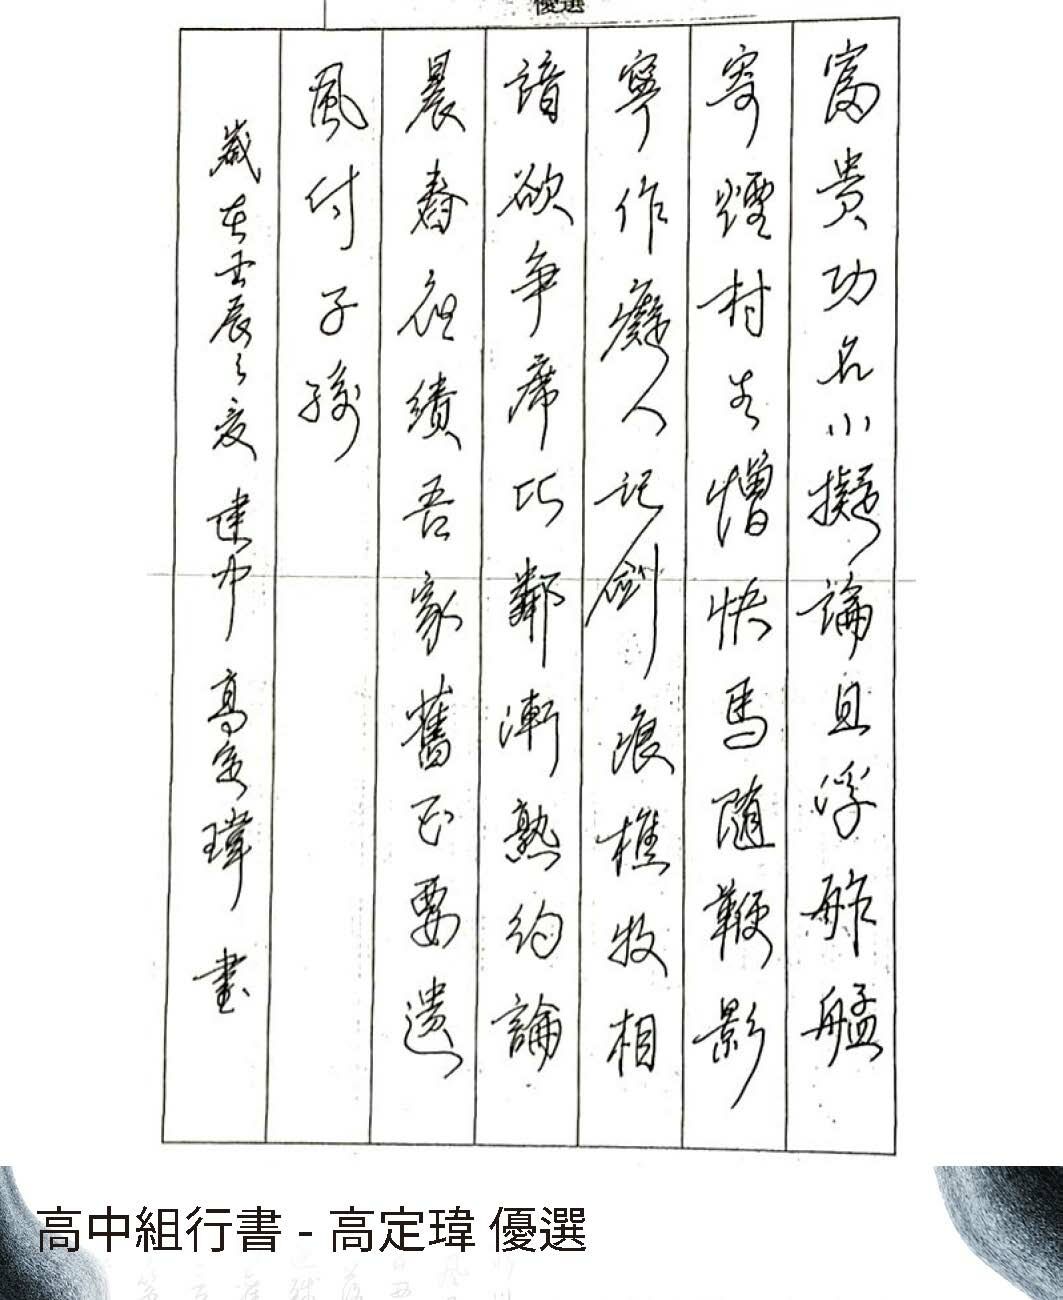 優選
富貴功名小擬論且浮舴艋
寄煙村生憎快馬隨鞭影
寧作癡人記劍痕樵牧相
諳欲爭席比鄰漸熟約論
晨春租績吾家舊正要遺
風付子孫
歲在壬辰之夏 建中 高定瑋 書
高中組行書 - 高定瑋 優選